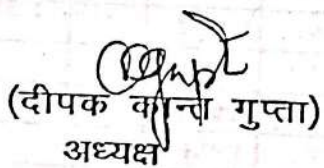 (दीपक कान्त गुप्ता)
अध्यक्ष